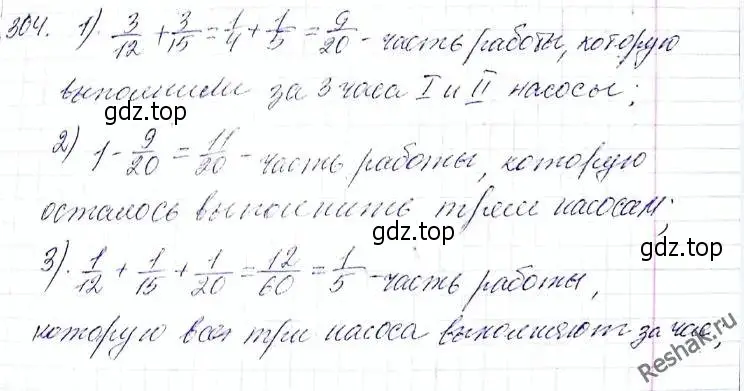 304. 1). 3/12 + 3/15 = 1/4 + 1/5 = 9/20 - часть работы, которую
выполнили за 3 часа I и II насосы;
2) 1 - 9/20 = 11/20 - часть работы, которую
осталось выполнить трём насосам;
3). 1/12 + 1/15 + 1/20 = 12/60 = 1/5 - часть работы,
которую все три насоса выполняют за час;
gdz.top
gdz.top
gdz.top
gdz.top
Reshak.ru